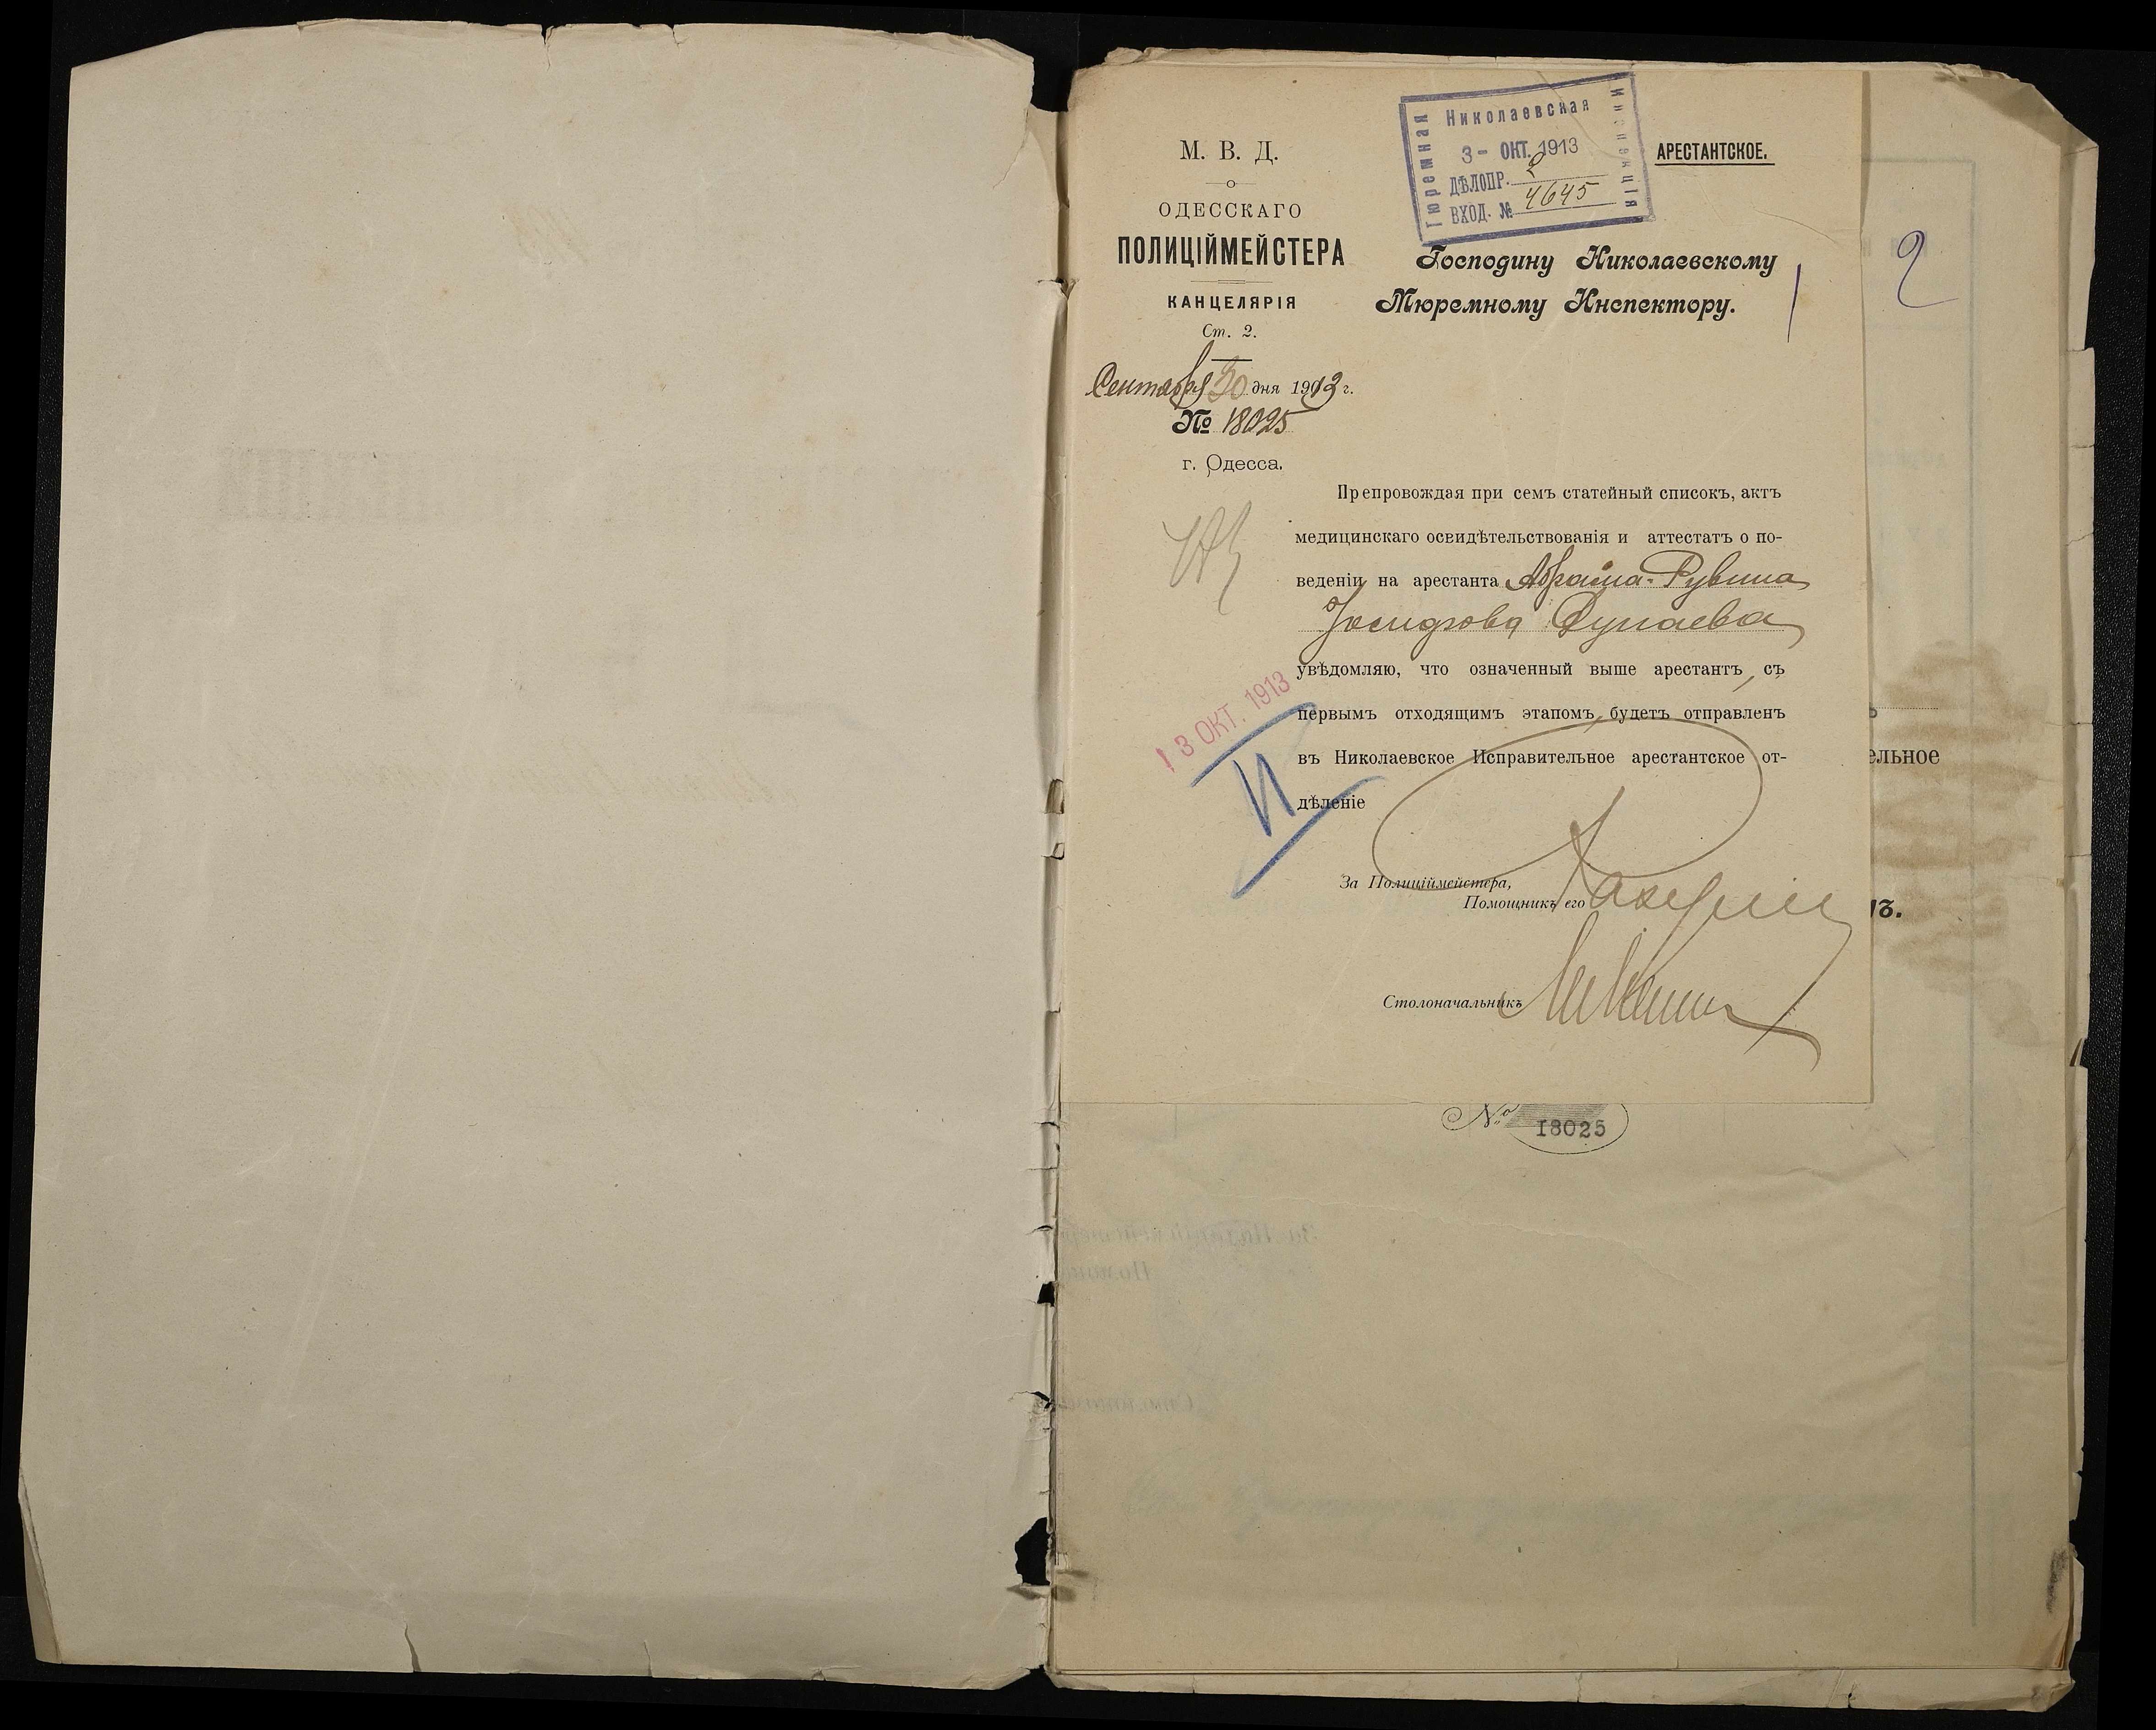 Николаевская
Тюремная
Инспекція
3 - ОКТ. 1913
ДѢЛОПР. 2
ВХОД. № 4645
АРЕСТАНТСКОЕ.
М. В. Д.
ОДЕССКАГО
ПОЛИЦІЙМЕЙСТЕРА
КАНЦЕЛЯРІЯ
Ст. 2.
Сентября 30 дня 1913 г.
№ 18025
г. Одесса.
Господину Николаевскому
Тюремному Инспектору.
1
2
Препровождая при семъ статейный списокъ, актъ
медицинскаго освидѣтельствованія и аттестатъ о по-
веденіи на арестанта Абрама-Рувина
Дунаева
увѣдомляю, что означенный выше арестантъ, съ
первымъ отходящимъ этапомъ будетъ отправленъ
въ Николаевское Исправительное арестантское от-
дѣленіе
13 ОКТ. 1913
За Полиціймейстера,
Помощникъ его
Столоначальникъ
ельное
ъ.
№ 18025